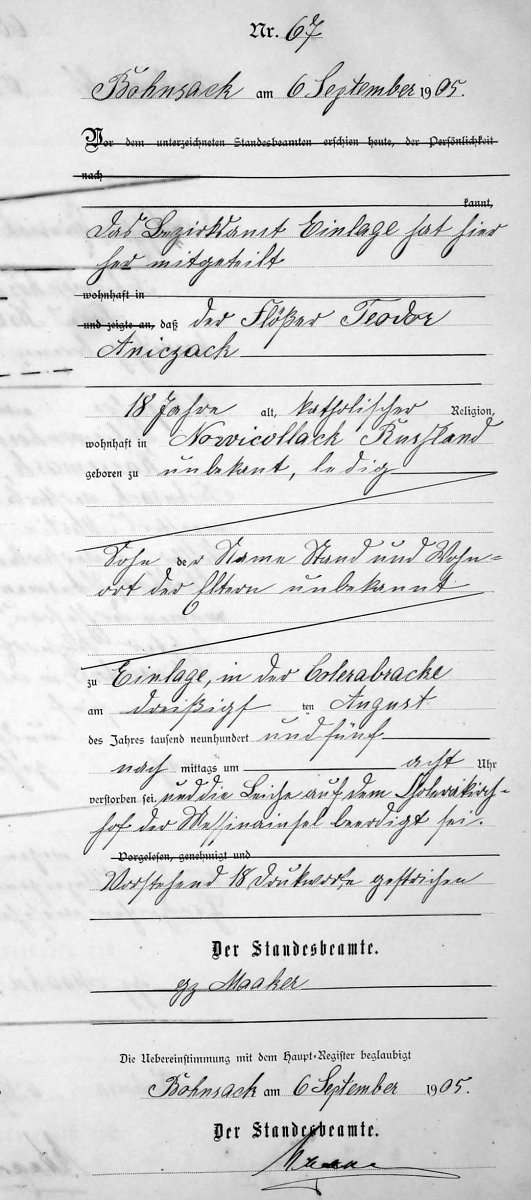 Nr. 67
Bohnsack am 6 September 1905.
Vor dem unterzeichneten Standesbeamten erschien heute, der Persönlichkeit
nach
kannt,
Das Bezirksamt Einlage hat hier
her mitgeteilt
wohnhaft in
und zeigte an, daß der Flößer Teodor
Aniczack
18 Jahre alt, katholischer Religion,
wohnhaft in Nowicollack Rußland
geboren zu unbekant, ledig
Sohn der Name Stand und Wohn=
ort der Eltern unbekannt
zu Einlage, in der Colerabracke
am dreißigs ten August
des Jahres tausend neunhundert und fünf
nach mittags um acht Uhr
verstorben sei und die Leiche auf dem Cholerakirch-
hof der Messinainsel beerdigt sei.
Vorgelesen, genehmigt und
Vorstehend 18 Druckworte gestrichen
Der Standesbeamte.
gz Maaker
Die Uebereinstimmung mit dem Haupt-Register beglaubigt
Bohnsack am 6 September 1905.
Der Standesbeamte.